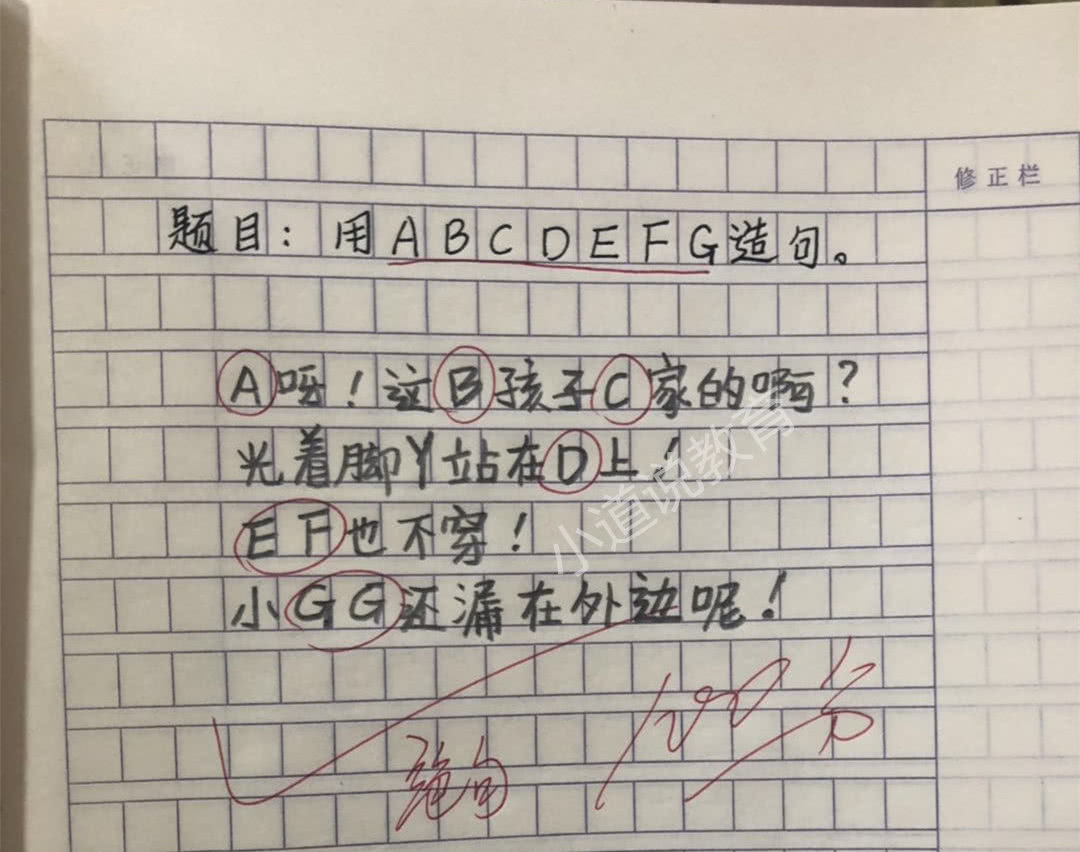 修正栏
题目：用ABCDEFG造句。
A呀！这B孩子C家的啊？
光着脚丫站在D上！
EF也不穿！
小GG还漏在外边呢！
100分
绝句
小道说教育